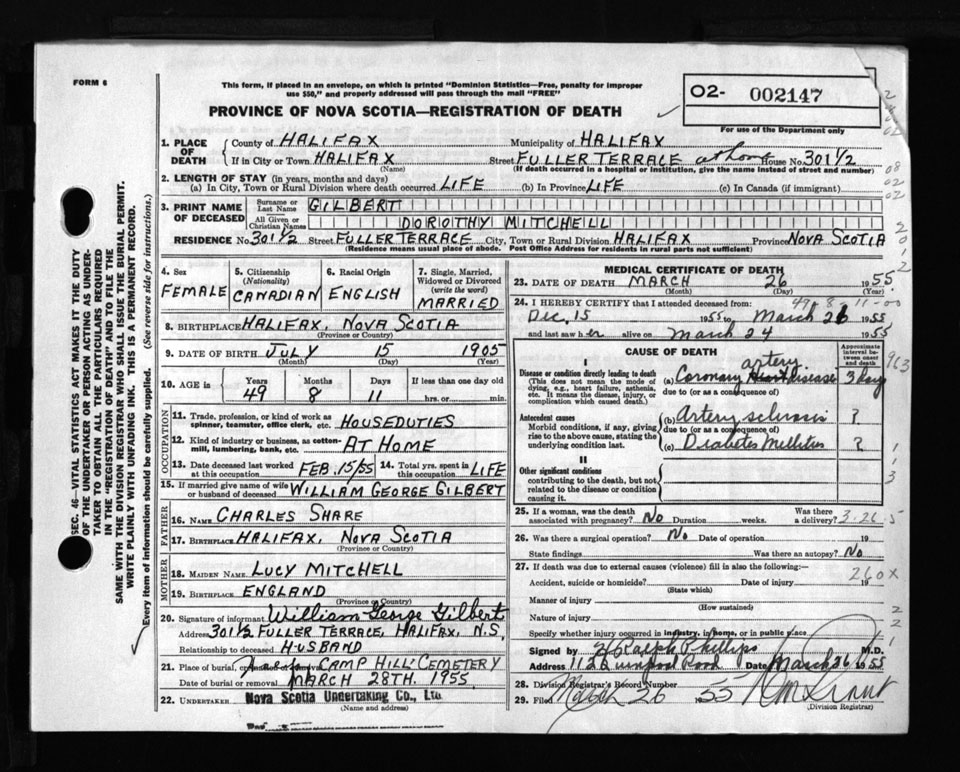 FORM 6
This form, if placed in an envelope, on which is printed "Dominion Statistics—Free, penalty for improper
use $50," and properly addressed will pass through the mail "FREE"
PROVINCE OF NOVA SCOTIA—REGISTRATION OF DEATH
O2- 002147
For use of the Department only
SEC. 46—VITAL STATISTICS ACT MAKES IT THE DUTY
OF THE UNDERTAKER OR PERSON ACTING AS UNDER-
TAKER TO OBTAIN ALL THE PARTICULARS REQUIRED
IN THE "REGISTRATION OF DEATH" AND TO FILE THE
SAME WITH THE DIVISION REGISTRAR WHO SHALL ISSUE THE BURIAL PERMIT.
WRITE PLAINLY WITH UNFADING INK. THIS IS A PERMANENT RECORD.
Every item of information should be carefully supplied. (See reverse side for instructions.)
1. PLACE OF DEATH County of HALIFAX Municipality of HALIFAX
If in City or Town HALIFAX (Name) Street FULLER TERRACE at home House No. 301½
(If death occurred in a hospital or institution, give the name instead of street and number)
2. LENGTH OF STAY (in years, months and days)
(a) In City, Town or Rural Division where death occurred LIFE (b) In Province LIFE (c) In Canada (if immigrant)
3. PRINT NAME OF DECEASED Surname or Last Name GILBERT
All Given or Christian Names DOROTHY MITCHELL
RESIDENCE No. 301½ Street FULLER TERRACE City, Town or Rural Division HALIFAX Province NOVA SCOTIA
(Residence means usual place of abode. Post Office Address for residents in rural parts not sufficient)
4. Sex FEMALE
5. Citizenship (Nationality) CANADIAN
6. Racial Origin ENGLISH
7. Single, Married, Widowed or Divorced (write the word) MARRIED
8. BIRTHPLACE HALIFAX, NOVA SCOTIA
(Province or Country)
9. DATE OF BIRTH JULY 15 1905
(Month) (Day) (Year)
10. AGE in Years 49 Months 8 Days 11 If less than one day old hrs. or min.
OCCUPATION
11. Trade, profession, or kind of work as spinner, teamster, office clerk, etc. HOUSEDUTIES
12. Kind of industry or business, as cotton-mill, lumbering, bank, etc. AT HOME
13. Date deceased last worked at this occupation FEB. 15/55 14. Total yrs. spent in this occupation LIFE
15. If married give name of wife or husband of deceased WILLIAM GEORGE GILBERT
FATHER
16. NAME CHARLES SHARE
17. BIRTHPLACE HALIFAX, NOVA SCOTIA
(Province or Country)
MOTHER
18. MAIDEN NAME LUCY MITCHELL
19. BIRTHPLACE ENGLAND
(Province or Country)
20. Signature of informant William George Gilbert
Address 301½ FULLER TERRACE, HALIFAX, N.S.
Relationship to deceased HUSBAND
21. Place of burial, CAMP HILL CEMETERY
Date of burial or removal MARCH 28TH. 1955
22. UNDERTAKER Nova Scotia Undertaking Co., Ltd.
(Name and address)
MEDICAL CERTIFICATE OF DEATH
23. DATE OF DEATH MARCH 26 1955
(Month) (Day) (Year)
49-8-11-00
24. I HEREBY CERTIFY that I attended deceased from:
Dec. 15 1955 to March 26 1955
and last saw her alive on March 24 1955
CAUSE OF DEATH
Approximate interval between onset and death
I
Disease or condition directly leading to death
(This does not mean the mode of dying, e.g., heart failure, asthenia, etc. It means the disease, injury, or complication which caused death.)
(a) Coronary artery Heart disease 3 days
due to (or as a consequence of)
Antecedent causes
Morbid conditions, if any, giving rise to the above cause, stating the underlying condition last.
(b) Artery sclerosis ?
due to (or as a consequence of)
(c) Diabetes Mellitus ?
II
Other significant conditions
contributing to the death, but not related to the disease or condition causing it.
25. If a woman, was the death associated with pregnancy? No Duration weeks. Was there a delivery? 3-26-5
26. Was there a surgical operation? No Date of operation 19
State findings Was there an autopsy? No
27. If death was due to external causes (violence) fill in also the following:—
260x
Accident, suicide or homicide? Date of injury 19
(State which)
Manner of injury
(How sustained)
Nature of injury
Specify whether injury occurred in industry, in home, or in public place
Signed by Ralph Phillips M.D.
Address 112 Quinpool Road Date March 26 1955
28. Division Registrar's Record Number
29. Filed March 26 1955
(Division Registrar)